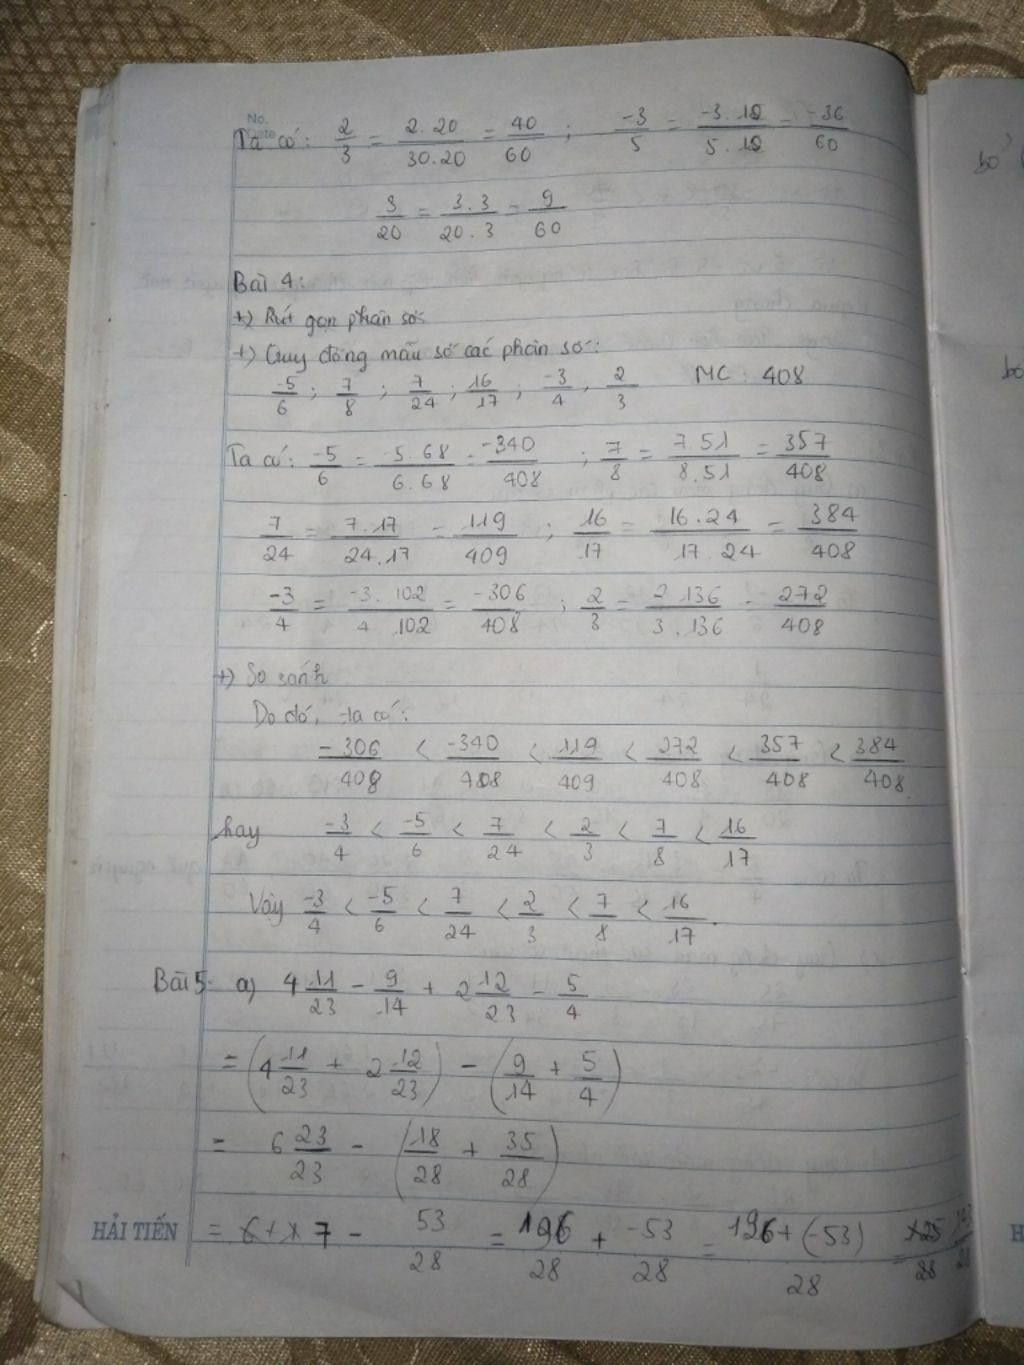 No.
Date
Ta có: 2/3 = 2.20/30.20 = 40/60 ; -3/5 = -3.12/5.12 = -36/60
3/20 = 3.3/20.3 = 9/60
Bài 4:
+) Rút gọn phân số
+) Quy đồng mẫu số các phân số:
-5/6 ; 7/8 ; 7/24 ; 16/17 ; -3/4 , 2/3 MC : 408
Ta có: -5/6 = -5.68/6.68 = -340/408 ; 7/8 = 7.51/8.51 = 357/408
7/24 = 7.17/24.17 = 119/409 ; 16/17 = 16.24/17.24 = 384/408
-3/4 = -3.102/4.102 = -306/408 ; 2/3 = 2.136/3.136 = 272/408
+) So sánh
Do đó, ta có:
-306/408 < -340/408 < 119/409 < 272/408 < 357/408 < 384/408.
hay -3/4 < -5/6 < 7/24 < 2/3 < 7/8 < 16/17
Vậy -3/4 < -5/6 < 7/24 < 2/3 < 7/8 < 16/17.
Bài 5: a) 4 11/23 - 9/14 + 2 12/23 - 5/4
= (4 11/23 + 2 12/23) - (9/14 + 5/4)
= 6 23/23 - (18/28 + 35/28)
= 7 - 53/28 = 196/28 + -53/28 = 196+(-53)/28 =
HẢI TIẾN